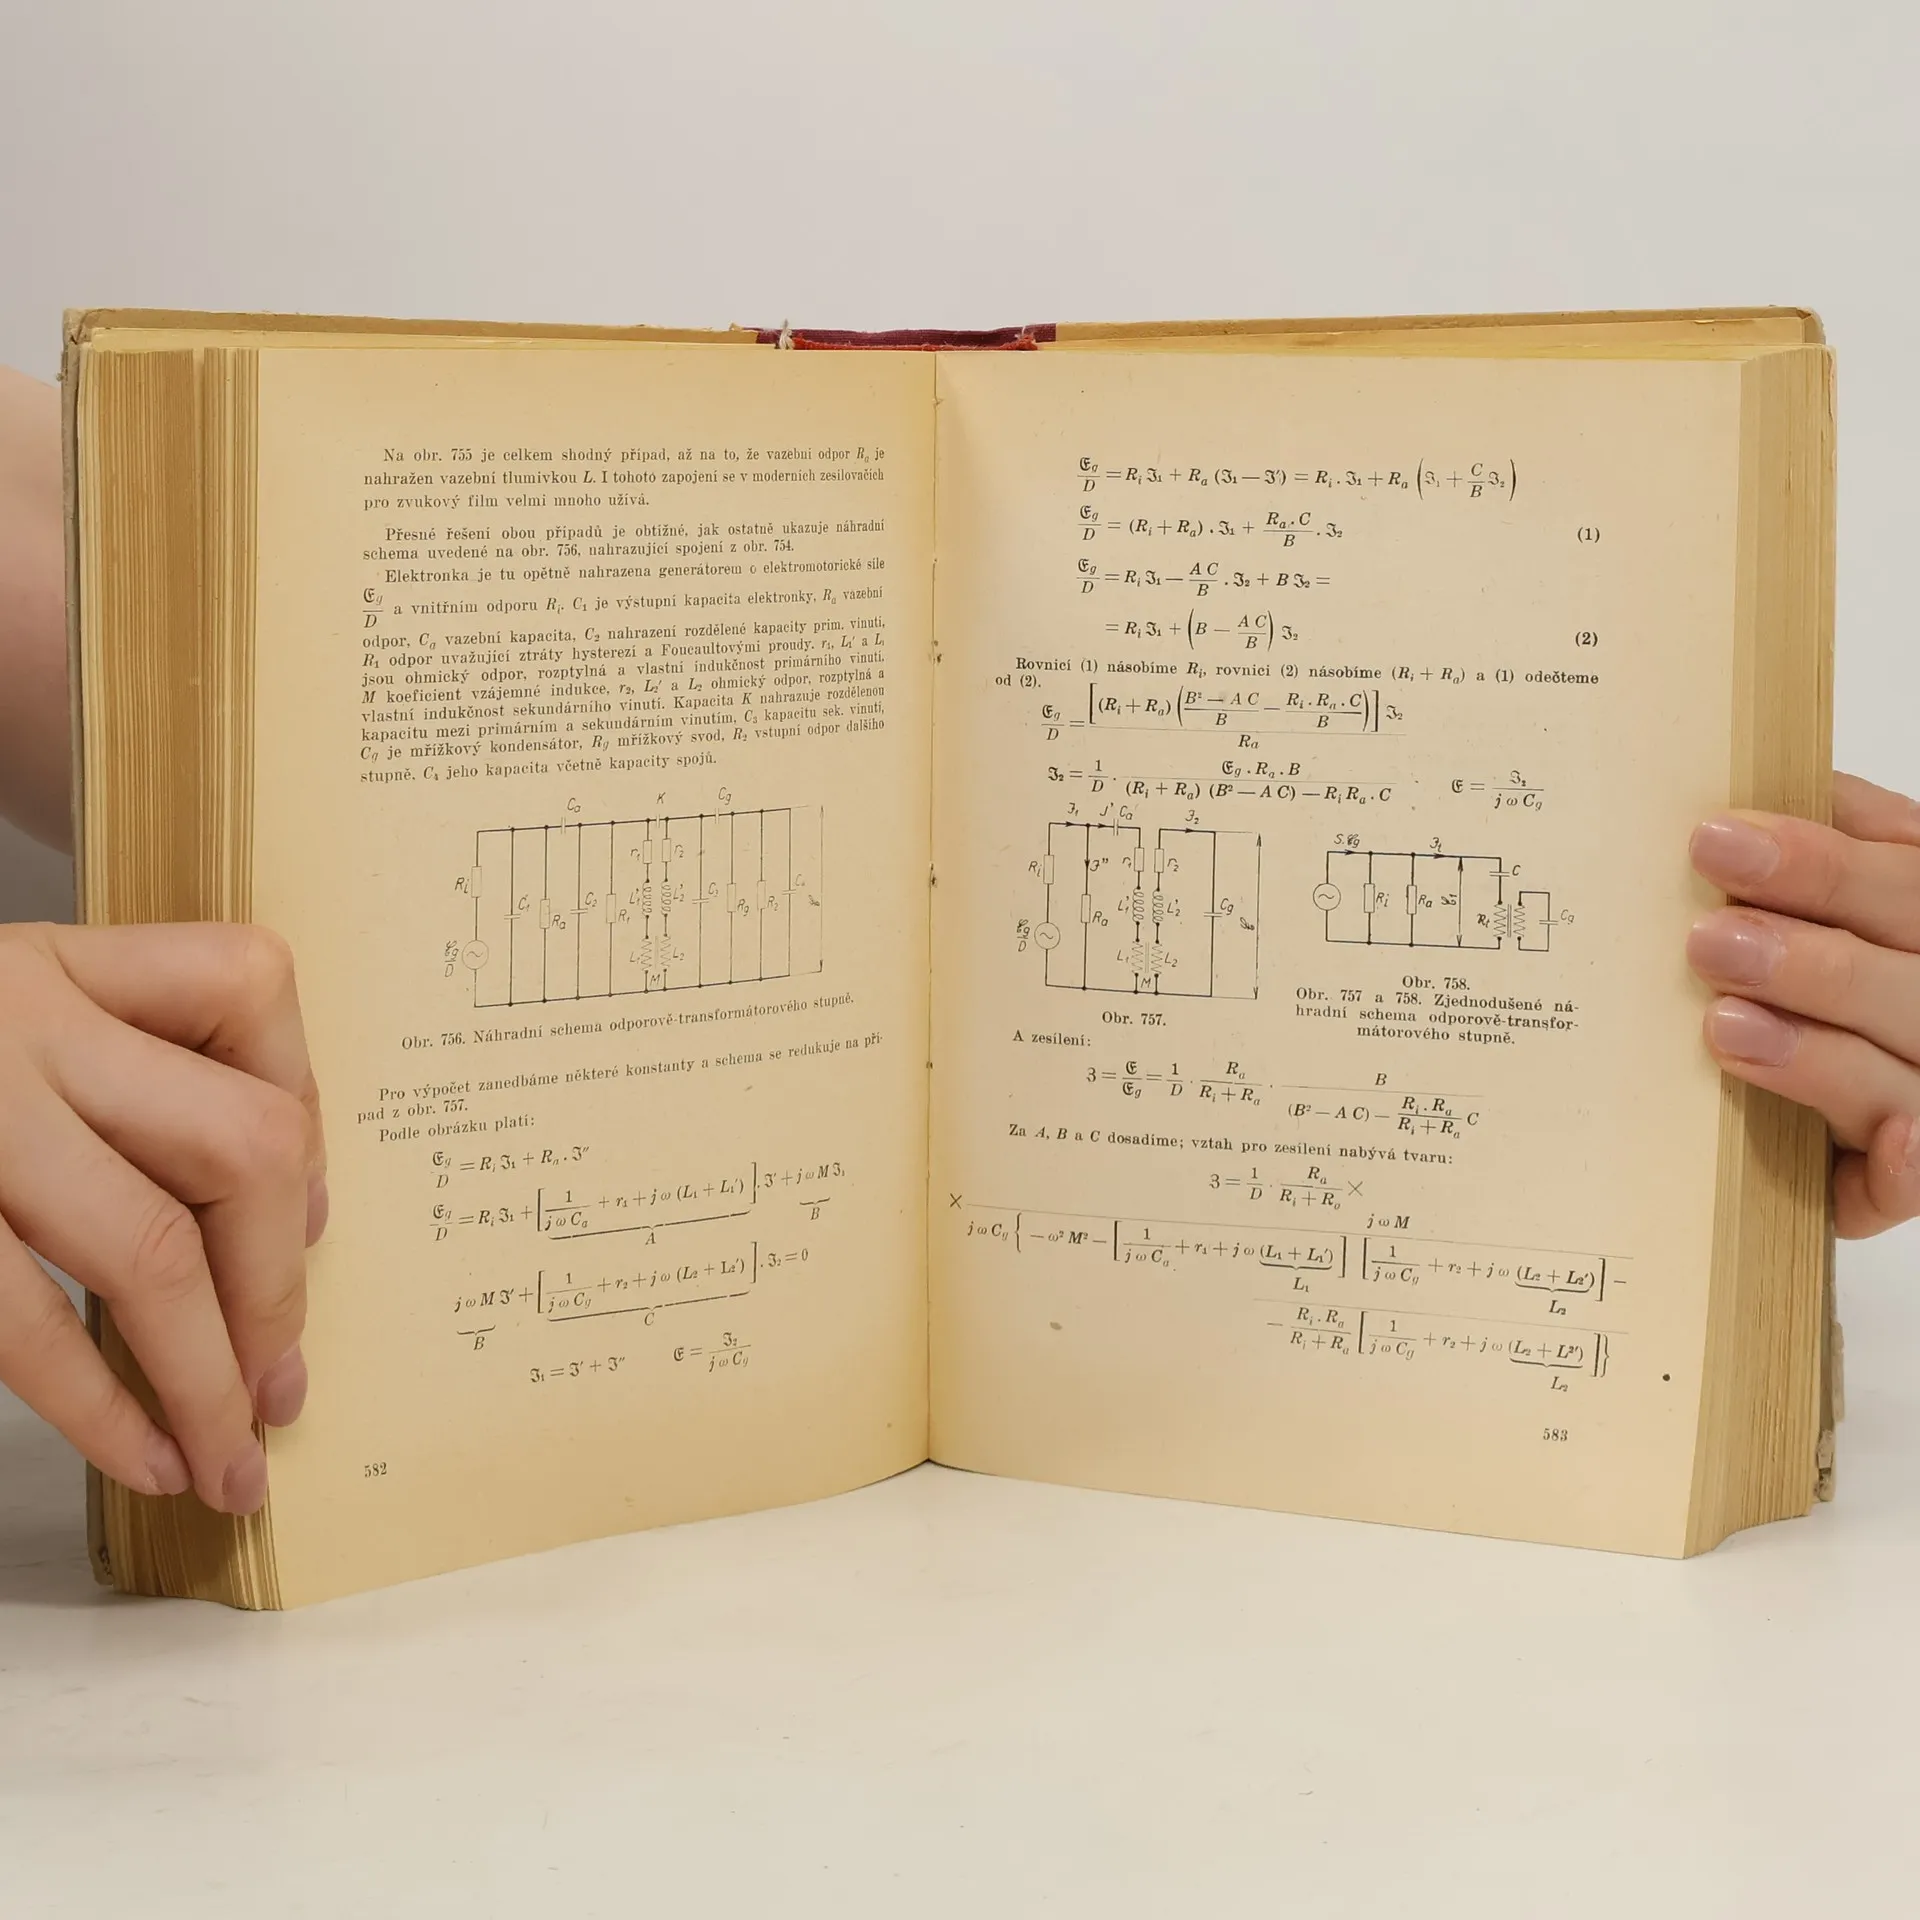 Na obr. 755 je celkem shodný případ, až na to, že vazební odpor Rₐ je
nahražen vazební tlumivkou L. I tohoto zapojení se v moderních zesilovačích
pro zvukový film velmi mnoho užívá.
Přesné řešení obou případů je obtížné, jak ostatně ukazuje náhradní
schema uvedené na obr. 756, nahrazující spojení z obr. 754.
Elektronka je tu opětně nahrazena generátorem o elektromotorické síle
𝔈g/D a vnitřním odporu Rᵢ. C₁ je výstupní kapacita elektronky, Rₐ vazební
odpor, Cₐ vazební kapacita, C₂ nahrazení rozdělené kapacity prim. vinutí,
R₁ odpor uvažující ztráty hysterezí a Foucaultovými proudy. r₁, L₁′ a L₁
jsou ohmický odpor, rozptylná a vlastní indukčnost primárního vinutí.
M koeficient vzájemné indukce, r₂, L₂′ a L₂ ohmický odpor, rozptylná a
vlastní indukčnost sekundárního vinutí. Kapacita K nahrazuje rozdělenou
kapacitu mezi primárním a sekundárním vinutím, C₃ kapacitu sek. vinutí,
Cg je mřížkový kondensátor, Rg mřížkový svod, R₂ vstupní odpor dalšího
stupně, C₄ jeho kapacita včetně kapacity spojů.
Cₐ K Cg
Rᵢ C₁ Rₐ C₂ R₁ r₁ r₂ L₁′ L₂′ C₃ Rg R₂ C₄
𝔈g/D L₁ L₂ M
Obr. 756. Náhradní schema odporově-transformátorového stupně.
Pro výpočet zanedbáme některé konstanty a schema se redukuje na pří-
pad z obr. 757.
Podle obrázku platí:
𝔈g/D = Rᵢ ℑ₁ + Rₐ . ℑ″
𝔈g/D = Rᵢ ℑ₁ + [1/(j ω Cₐ) + r₁ + j ω (L₁ + L₁′)] . ℑ′ + j ω M ℑ₁
A B
j ω M ℑ′ + [1/(j ω Cg) + r₂ + j ω (L₂ + L₂′)] . ℑ₂ = 0
B C
ℑ₁ = ℑ′ + ℑ″ 𝔈 = ℑ₂/(j ω Cg)
582
𝔈g/D = Rᵢ ℑ₁ + Rₐ (ℑ₁ — ℑ′) = Rᵢ . ℑ₁ + Rₐ (ℑ₁ + C/B ℑ₂)
𝔈g/D = (Rᵢ + Rₐ) . ℑ₁ + (Rₐ . C)/B . ℑ₂ (1)
𝔈g/D = Rᵢ ℑ₁ — (A C)/B . ℑ₂ + B ℑ₂ =
= Rᵢ ℑ₁ + (B — (A C)/B) ℑ₂ (2)
Rovnici (1) násobíme Rᵢ, rovnici (2) násobíme (Rᵢ + Rₐ) a (1) odečteme
od (2).
𝔈g/D = [(Rᵢ + Rₐ) ((B² — A C)/B — (Rᵢ . Rₐ . C)/B)] ℑ₂ / Rₐ
ℑ₂ = 1/D . (𝔈g . Rₐ . B)/((Rᵢ + Rₐ) (B² — A C) — Rᵢ Rₐ . C) 𝔈 = ℑ₂/(j ω Cg)
ℑ₁ J′ Cₐ ℑ₂
Rᵢ ℑ″ r₁ r₂
Rₐ L₁′ L₂′ Cg
𝔈g/D L₁ L₂
M
Obr. 757.
S.𝔈g ℑ₁
C
Rᵢ Rₐ R₁ Cg
Obr. 758.
Obr. 757 a 758. Zjednodušené ná-
hradní schema odporově-transfor-
mátorového stupně.
A zesílení:
ℨ = 𝔈/𝔈g = 1/D . Rₐ/(Rᵢ + Rₐ) . B/((B² — A C) — (Rᵢ . Rₐ)/(Rᵢ + Rₐ) C)
Za A, B a C dosadíme; vztah pro zesílení nabývá tvaru:
ℨ = 1/D . Rₐ/(Rᵢ + Rₐ) ×
× j ω M
j ω Cg { — ω² M² — [1/(j ω Cₐ) + r₁ + j ω (L₁ + L₁′)] [1/(j ω Cg) + r₂ + j ω (L₂ + L₂′)] —
L₁ L₂
— (Rᵢ . Rₐ)/(Rᵢ + Rₐ) [1/(j ω Cg) + r₂ + j ω (L₂ + L²′)]}
L₂
583